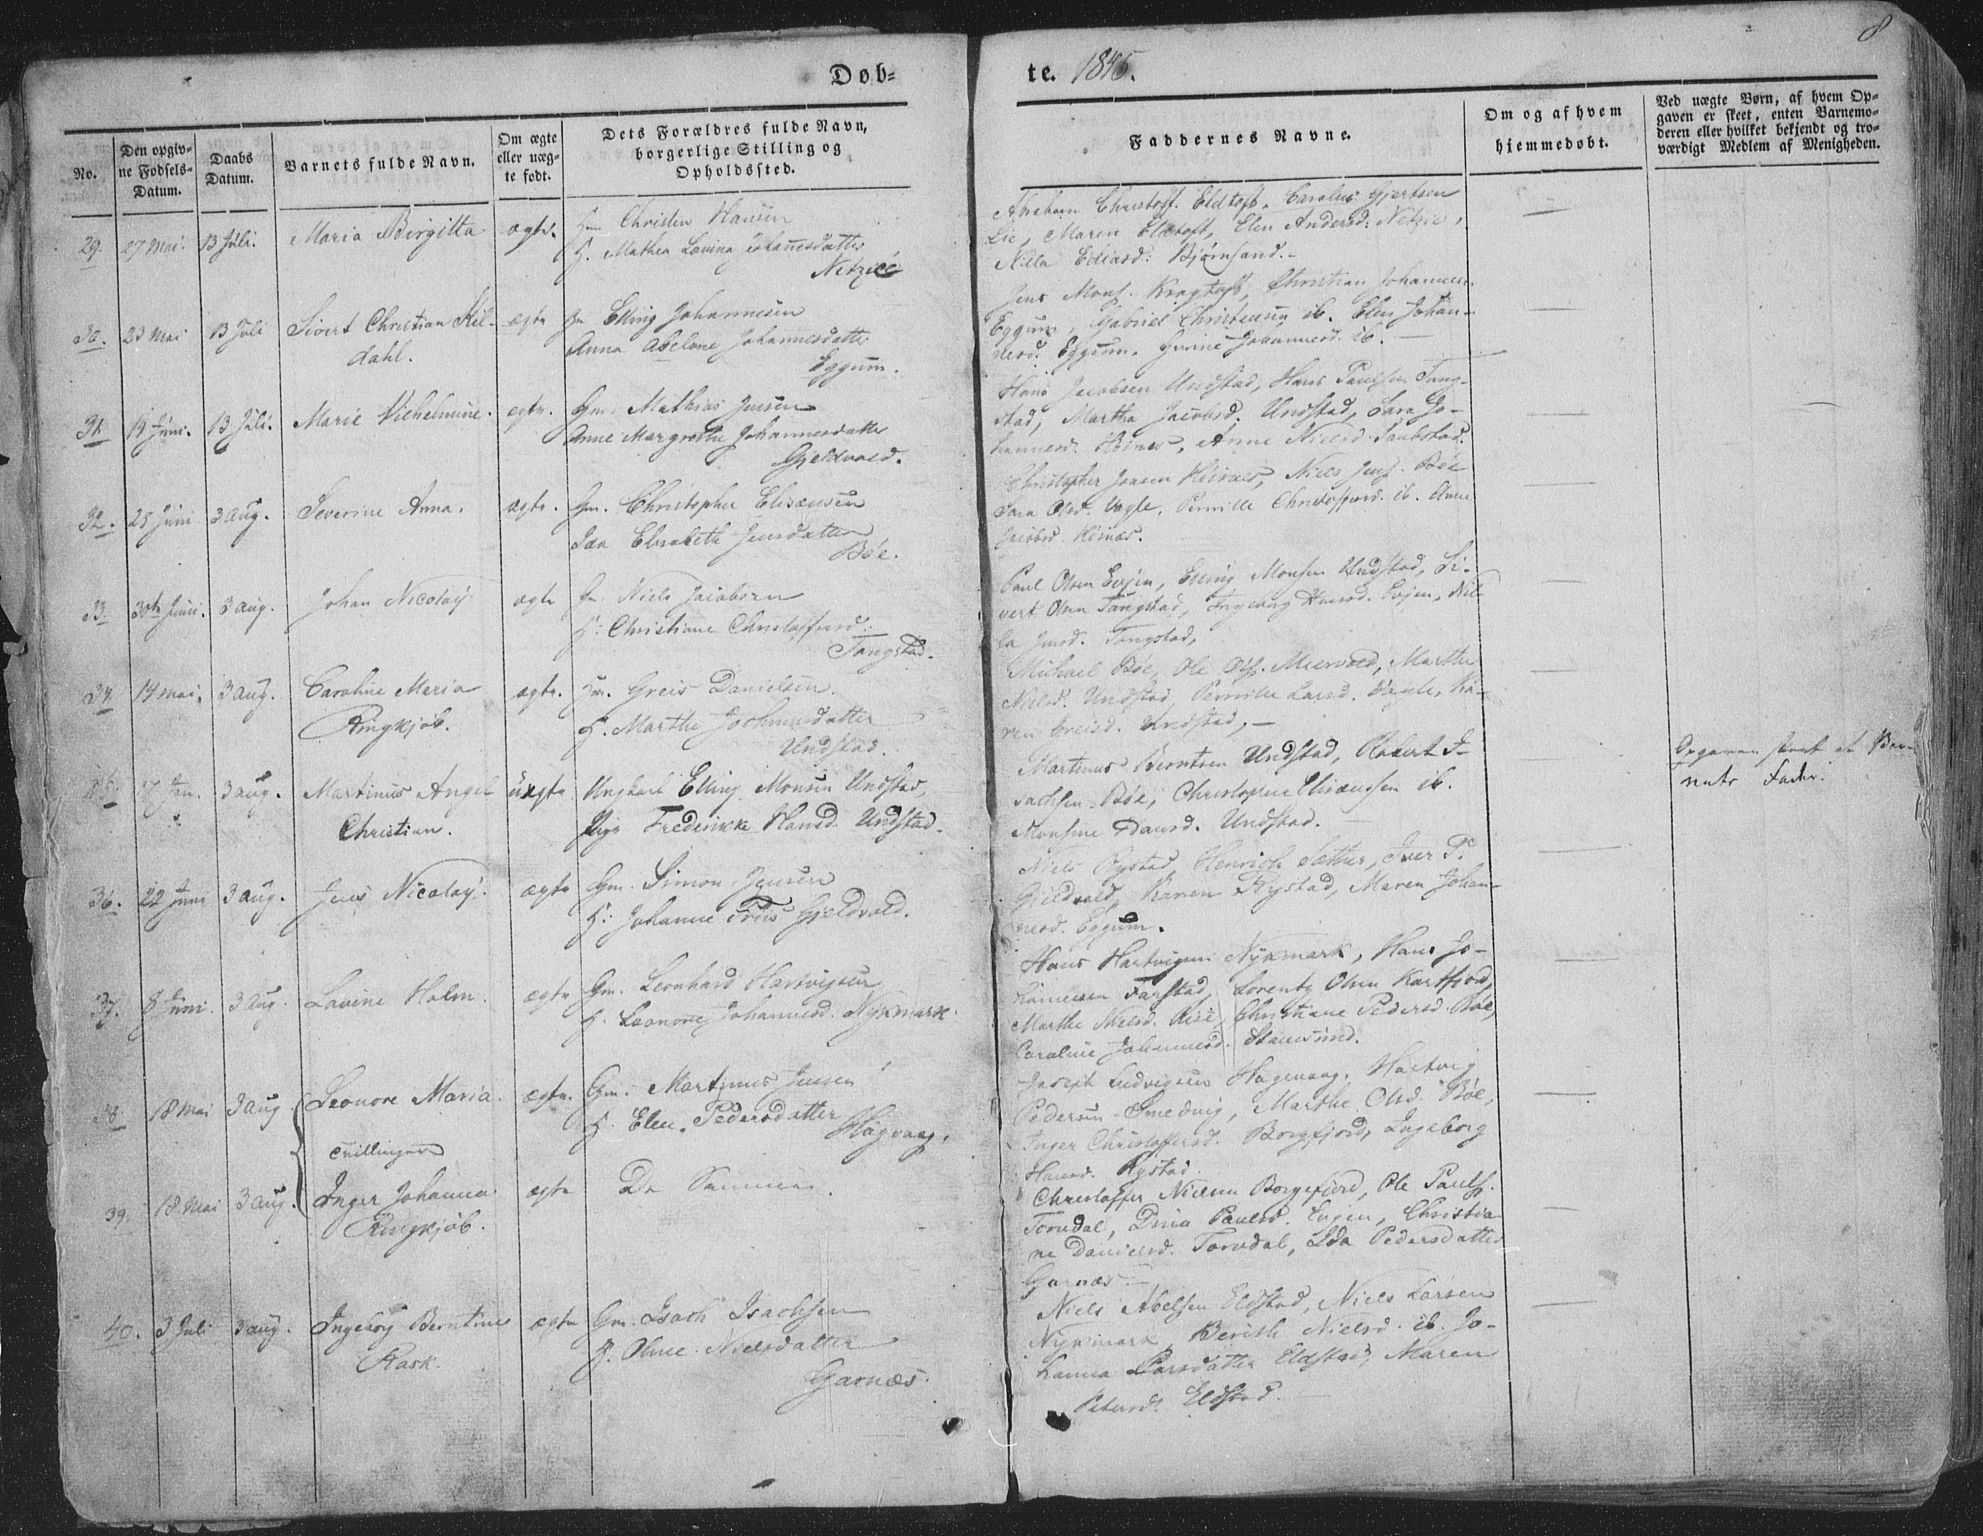 8
Døb= te. 1845.
No.
Den opgiv=
ne Fødsels=
Datum.
Daabs
Datum.
Barnets fulde Navn.
Om ægte
eller uæg=
te født.
Dets Forældres fulde Navn,
borgerlige Stilling og
Opholdssted.
Faddernes Navne.
Om og af hvem
hjemmedøbt.
Ved uægte Børn, af hvem Op=
gaven er skeet, enten Barnemo=
deren eller hvilket bekjendt og tro=
værdigt Medlem af Menigheden.
29. 27 Mai. 13 Juli. Maria Birgitta ægte. Christen Hansen
H. Mathea Lovina Johannesdatter
Abraham Christoff. Eldtoft, Carolus Gjertsen
Lie, Maren Eldtoft, Elen Andersd.
Nilla Ediasd. Bjørnsand.
30. 23 Mai 13 Juli Sivert Christian Kil-
dahl.
ægte Elling Johannesen
Anna Abelone Johannesdatter
Eggum.
Jens Mons. Kragtoft, Christian Johannesen
Eggum, Gabriel Christensen ib. Elen Johan-
nesd. Eggum, Johannesd. ib.
31. 14 Juni. 13 Juli. Marie Vilhelmine. ægte. Gm. Mathias Jensen
Anne Margrethe Johannesdatter
Gjeldvold.
Hans Jacobsen Undstad, Hans Paulsen Tang-
stad, Martha Jacobsd. Undstad, Sara Jo-
hannesd. Anne Nielsd.
32. 25 Juni 3 Aug. Severine Anna. ægte. Gm. Christopher Elisæusen
Elisabeth Jensdatter
Bøe.
Christopher Jonsen Niels Jens. Bøe
Sara Olsd. Pernille Christoffersd. ib. Anne
Jacobsd.
33. 30te Juni. 3 Aug. Johan Nicolay. ægte Niels Jacobsen
H. Christiane Christoffersd.
Tangstad.
Paul Olsen Evjen, Elling Monsen Undstad, Si-
vert Olsen Tangstad, Ingeborg Hansd. Evjen, Nil-
la Jensd. Tangstad,
34. 14 Mai. 3 Aug. Caroline Maria
Ringkjøb.
ægte. Greis Danielsen.
H. Marthe Jochumsdatter
Undstad.
Michael Bøe, Ole Ols. Marthe
Nielsd. Undstad, Pernille Larsd. Ka-
ren Greisd. Undstad,
35. 17 Jan. 3 Aug. Martinus Angel
Christian.
uægte Ungkarl Elling Monsen Undstad,
Pige Frederikke Hansd. Undstad.
Martinus Berntsen Undstad, Robert I-
sachsen Bøe, Christopher Elisæussen ib.
Monsine Undstad.
Opgaven skeet af Bar-
nets Fader.
36. 22 Juni 3 Aug. Jens Nicolay. ægte Gm. Simon Jensen
H. Johanne Gjeldvold.
Niels Rystad, Henrich Sætter, Iver P.
Gjeldvold, Karen Rystad, Maren Johan-
nesd. Eggum.
37. 8 Juni. 3 Aug. Lovine Holm. ægte Gm. Leonhard Hartvigsen
H. Leonore Johannesd. Nykmark.
Hans Hartvigsen Nykmark, Hans Jo-
hannesen Farstad, Lorentz Olsen Kartfjord,
Marthe Nielsd. Christiane Pedersd. Bøe,
Caroline Johannesd. Stamsund.
38. 18 Mai 3 Aug Leonore Maria.
ægte. Gm. Martinus Jensen
H. Elen Pedersdatter
Hagvaag.
Joseph Ludvigsen Hagevaag, Hartvig
Pedersen Smedvig, Marthe Olsd. Bøe,
Inger Christoffersd. Borgfjord, Ingeborg
Hansd. Rystad.
tvillinger
39. 18 Mai 3 Aug. Inger Johanna
Ringkjøb.
ægte De Sammes.
Christoffer Nielsen Borgefjord, Ole Pauls.
Torvdal, Paulsd. Evjen, Christia-
ne Danielsd. Torvdal, Ida Pedersdatter
Garnæs
40. 3 Juli 3 Aug. Ingeborg Berntine
Rask.
ægte Gm. Isach Isachsen
H. Oline Nielsdatter
Garnæs.
Niels Abelsen Eldstad, Niels Larsen
Nykmark, Berith Nielsd. ib. Jo-
hanna Larsdatter Eldstad, Maren
Petersd. Eldstad.